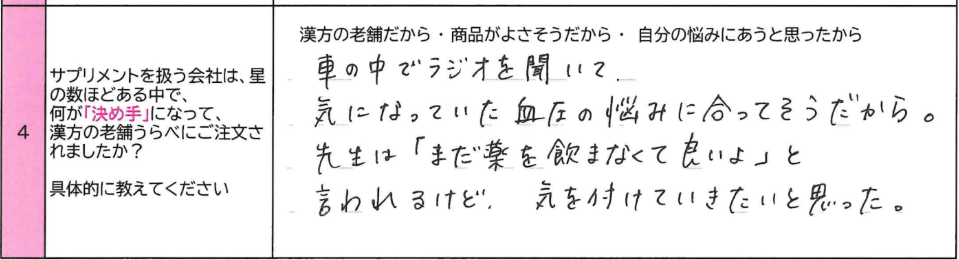 4
サプリメントを扱う会社は、星
の数ほどある中で、
何が「決め手」になって、
漢方の老舗うらべにご注文さ
れましたか?
具体的に教えてください
漢方の老舗だから・商品がよさそうだから・ 自分の悩みにあうと思ったから
車の中でラジオを聞いて
気になっていた血圧の悩みに合ってそうだから。
先生は「まだ薬を飲まなくて良いよ」と
言われるけど、気を付けていきたいと思った。